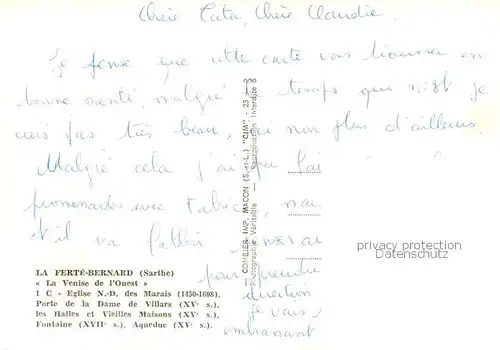 Chère Tata, Chère Claudie.
Je pense que cette carte vous trouvera en
bonne santé, malgré temps qui n'est je
crois pas très beau, ici non plus d'ailleurs
Malgré cela j'ai pu fai
promenades avec
et il va falloir
pour prendre
direction
je vais
embrassant
COMBIER IMP. MACON (S.-et-L.) "CIM" - 25
Photographie Véritable — Reproduction Interdite
protection watermark
DELCAMPE.NET
LA FERTÉ-BERNARD (Sarthe)
« La Venise de l'Ouest »
1 C - Eglise N.-D. des Marais (1450-1608),
Porte de la Dame de Villars (XVe s.),
les Halles et Vieilles Maisons (XVe s.),
Fontaine (XVIIe s.), Aqueduc (XVe s.).